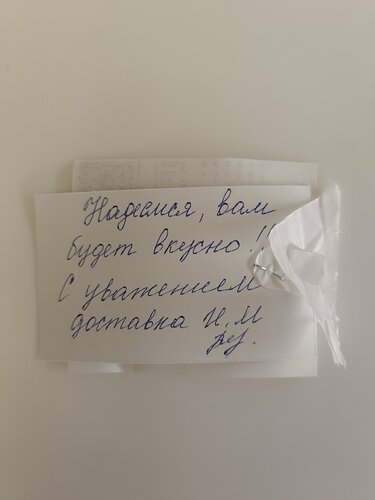 Надеемся, вам
будет вкусно!!
С уважением
доставка Н.М